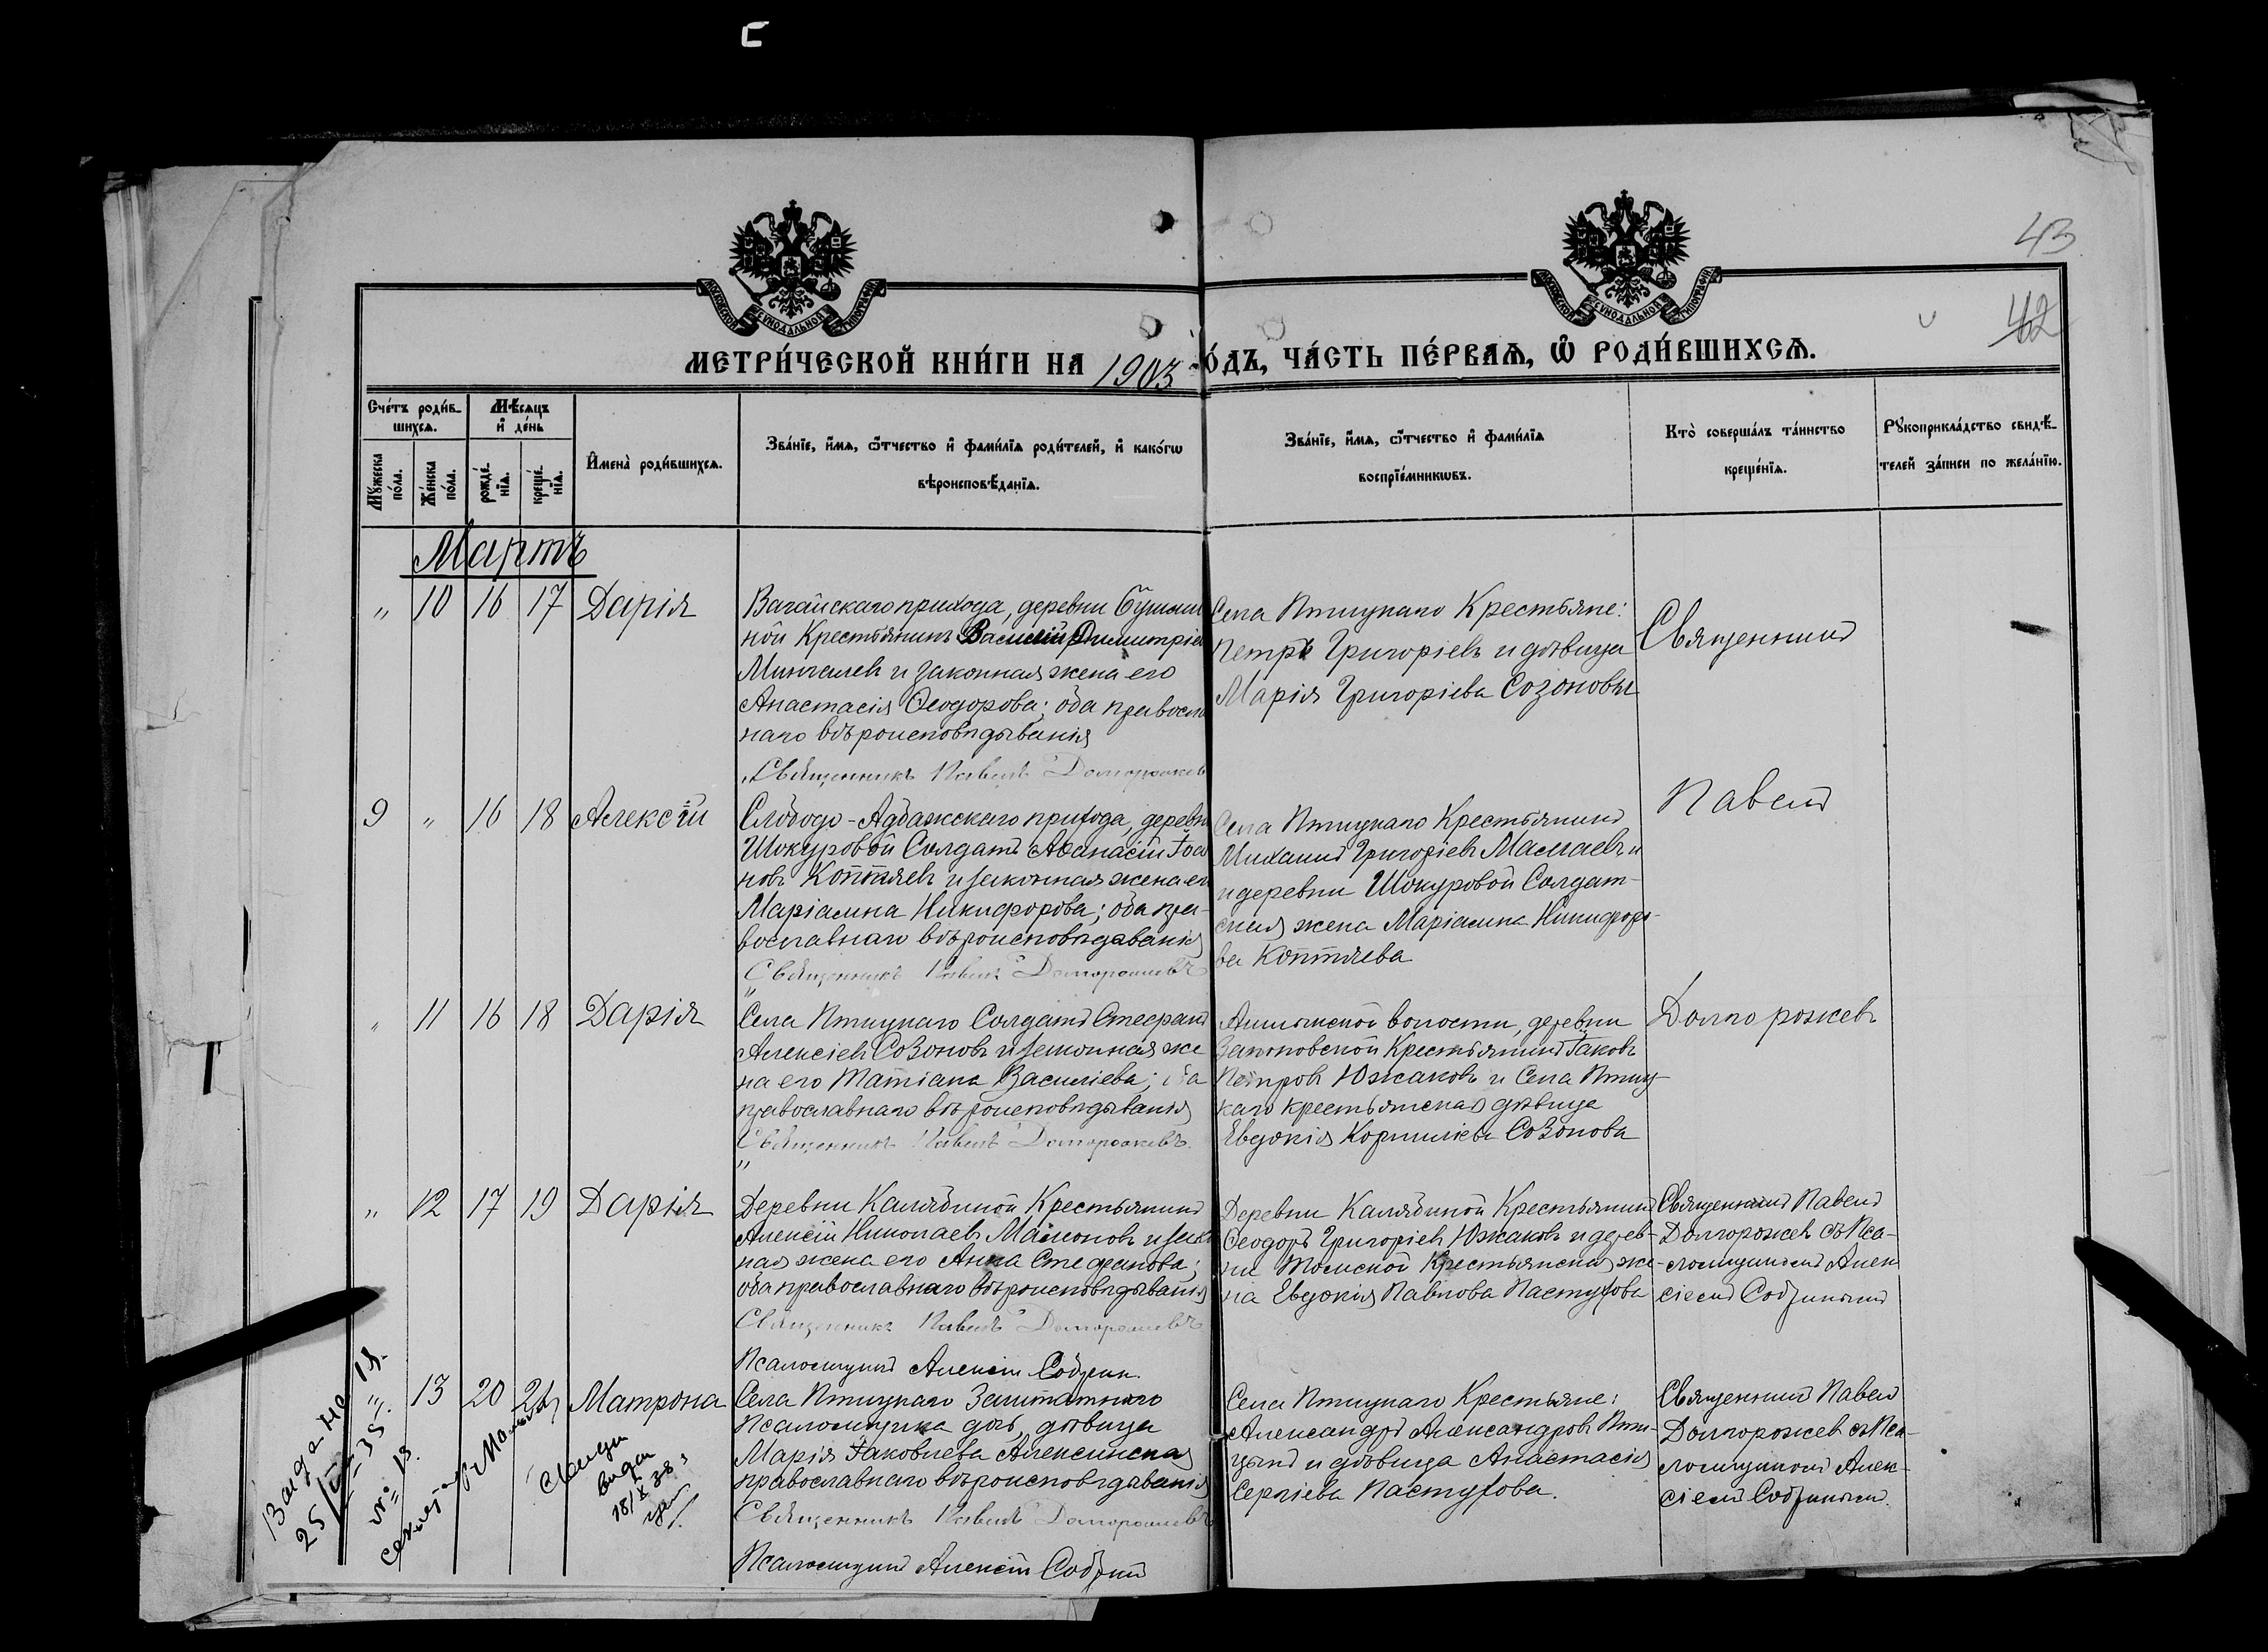 43
42
МЕТРИ́ЧЕСКОЙ КНИ́ГИ НА 1903 ГО́ДЪ, ЧА́СТЬ ПЕ́РВАѦ, Ѡ҆ РОДИ́ВШИХСѦ.
Сче́тъ роди́вшихсѧ.
Мꙋ́жеска по́ла.
Же́нска по́ла.
Мѣ́сѧцъ и҆ де́нь
рожде́нїѧ.
креще́нїѧ.
И҆мена̀ роди́вшихсѧ.
Зва́нїе, и҆́мѧ, ѻ҆́тчество и҆ фами́лїѧ роди́телей, и҆ како́гѡ
вѣроисповѣ́данїѧ.
Зва́нїе, и҆́мѧ, ѻ҆́тчество и҆ фами́лїѧ
воспрїе́мникѡвъ.
Кто̀ соверша́лъ та́инство
креще́нїѧ.
Рꙋкоприкла́дство свидѣ́-
телей за́писи по жела́нїю.
Мартъ
" 10 16 17 Дарія
Вагайскаго прихода, деревни
ной Крестьянинъ Василій Димитріев
Мингалевъ и законная жена его
Анастасія Ѳеодорова; оба правосл
наго вѣроисповѣдыванія
Священникъ Павелъ Долгорожев
Села Птицкаго Крестьяне:
Петръ Григоріевъ и дѣвица
Марія Григоріева Созоновы
Священникъ
9 " 16 18 Алексѣй
Слободо-Адбажскаго прихода, деревн
Шокуровой Солдатъ Аѳанасій Іоан
новъ Коптяевъ и законная жена ег
Маріамна Никифорова; оба пра-
вославнаго вѣроисповѣдаванія
Священникъ Павелъ Долгорожевъ
Села Птицкаго Крестьянинъ
Михаилъ Григоріевъ и
и деревни Шокуровой Солдат-
ская жена Маріамна Никифоро-
ва Коптяева
Павелъ
" 11 16 18 Дарія
Села Птицкаго Солдатъ Стефанъ
Алексіевъ Созоновъ и законная же
на его Татіана Василіева; оба
православнаго вѣроисповѣдыванія
Священникъ Павелъ Долгорожевъ.
волости, деревни
Крестьянинъ Іаковъ
Петровъ Южаковъ и Села Птиц-
каго крестьянская дѣвица
Евдокія Корниліева Созонова
Долгорожевъ
" 12 17 19 Дарія
Деревни Калядиной Крестьянинъ
Алексій Николаевъ и закон
ная жена его Анна Стефанова;
оба православнаго вѣроисповѣдыванія
Священникъ Павелъ Долгорожевъ
Псаломщикъ Алексій
Деревни Калядиной Крестьянинъ
Ѳеодоръ Григоріевъ Южаковъ и дерев-
ни Томской Крестьянская же-
на Евдокія Павлова Пастухова
Священникъ Павелъ
Долгорожевъ съ Пса-
ломщикомъ Алек
сіемъ
" 13 20 21 Матрона
Села Птицкаго Заштатнаго
Псаломщика дочь, дѣвица
Марія Іаковлева Алексинская
православнаго вѣроисповѣдыванія
Священникъ Павелъ Долгорожевъ
Псаломщикъ Алексій
Села Птицкаго Крестьяне:
Александръ Александровъ Пти-
цынъ и дѣвица Анастасія
Сергіева Пастухова.
Священникъ Павелъ
Долгорожевъ съ Пса-
ломщикомъ Алек-
сіемъ